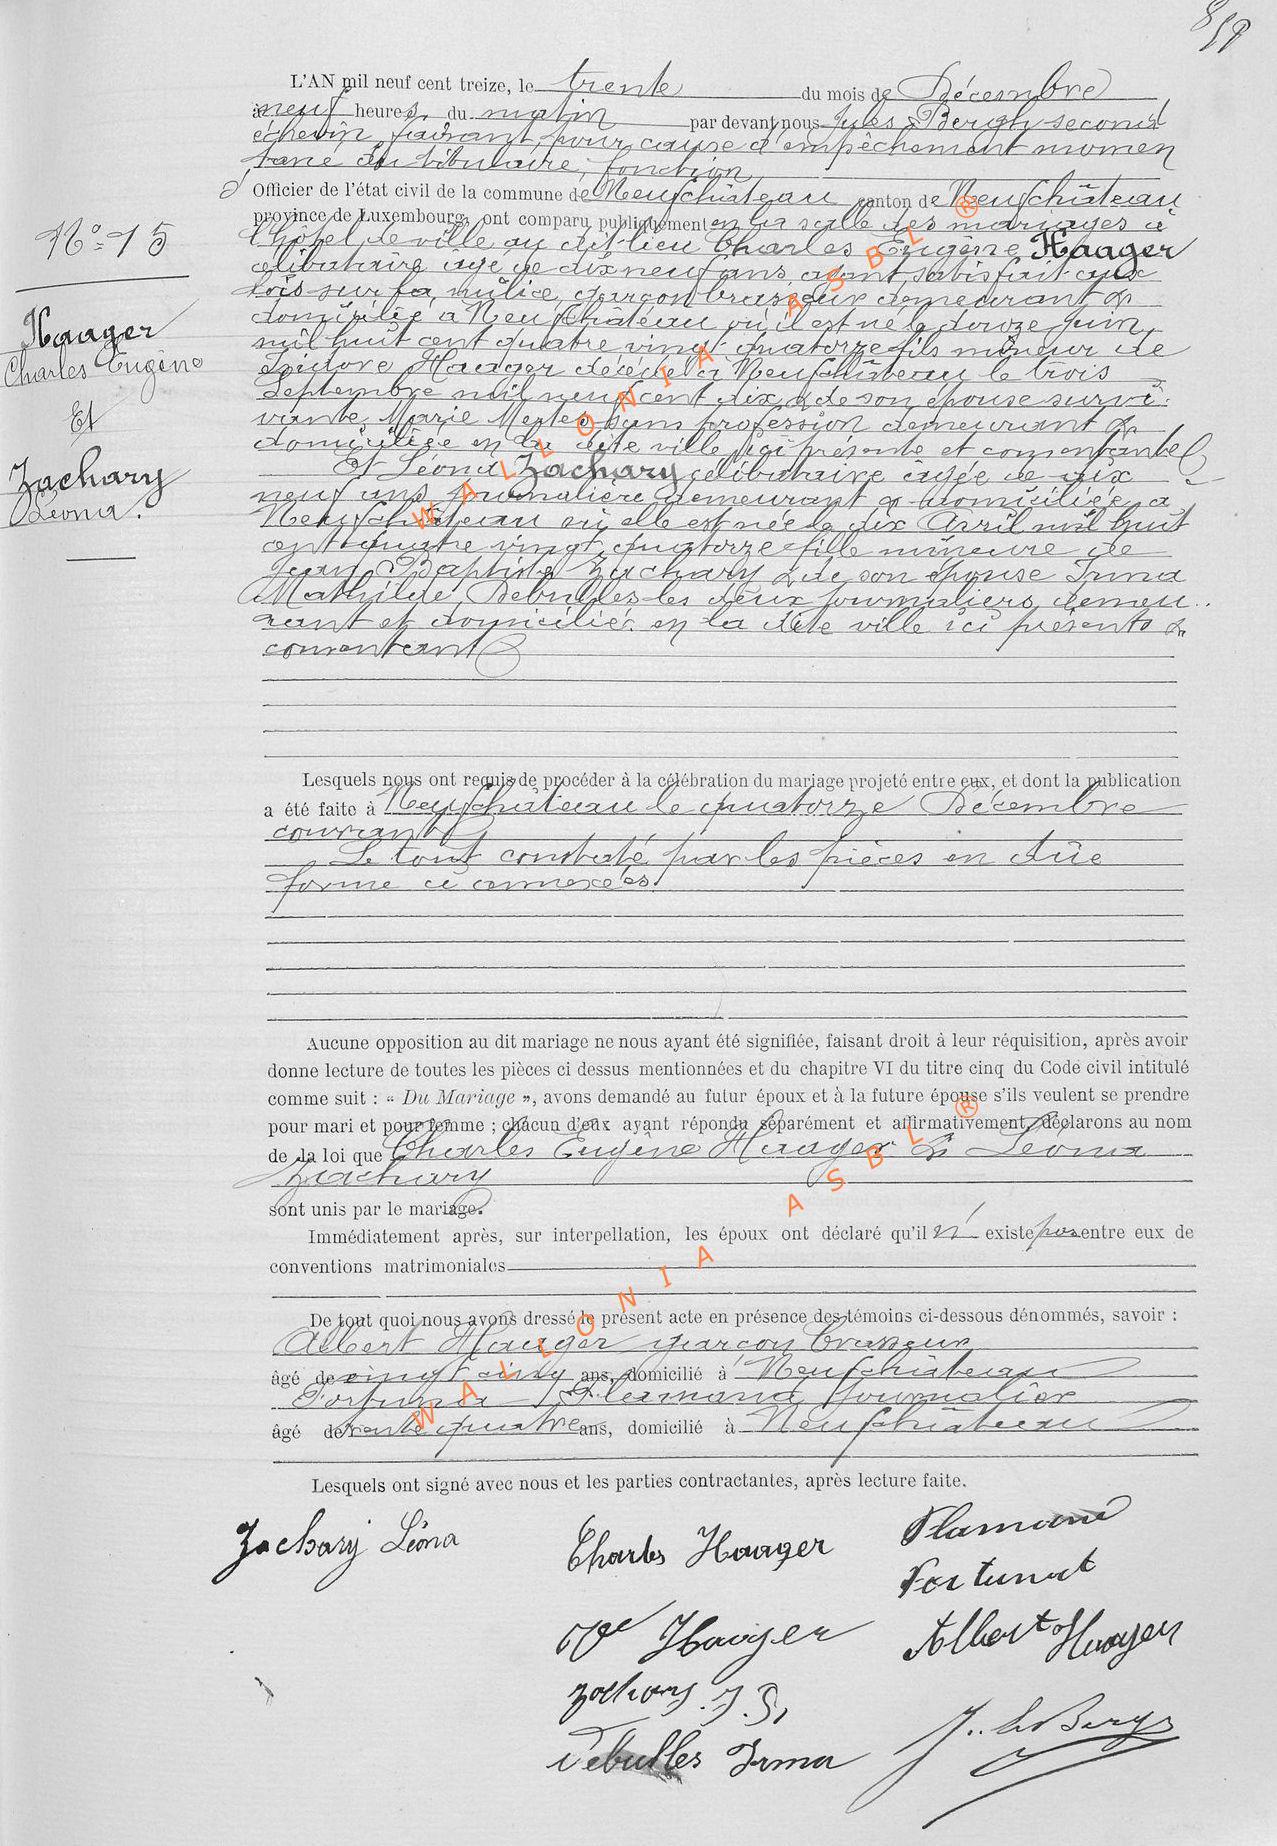 859
L'AN mil neuf cent treize, le trente du mois de Décembre
à neuf heures du matin par devant nous Jules Bergh second
échevin, faisant, pour cause d'empêchement momen
tané du titulaire, fonction
d' Officier de l'état civil de la commune de Neufchâteau canton de Neufchâteau
province de Luxembourg, ont comparu publiquement en la salle des mariages à
l'hôtel de ville au dit lieu Charles Eugène Haager
célibataire âgé de dix neuf ans, ayant satisfait aux
lois sur la milice, garçon brasseur demeurant &
domicilié à Neufchâteau où il est né le douze Juin
mil huit cent quatre vingt quatorze fils mineur de
Isidore Haager décédé à Neufchâteau le trois
Septembre mil neuf cent dix & de son épouse survi-
vante Marie Mertes sans profession demeurant &
domiciliée en la dite ville ici présente et consentante
Et Léona Zachary célibataire âgée de dix
neuf ans journalière demeurant & domiciliée à
Neufchâteau où elle est née le dix Avril mil huit
cent quatre vingt quatorze fille mineure de
Jean Baptiste Zachary & de son épouse Irma
Mathilde Debulles les deux journaliers demeu..
rant et domiciliés en la dite ville ici présents &
consentants
N° 15
Haager
Charles Eugène
Et
Zachary
Léona.
Lesquels nous ont requis de procéder à la célébration du mariage projeté entre eux, et dont la publication
a été faite à Neufchâteau le quatorze Décembre
courrant
Le tout constaté par les pièces en dûe
forme ci annexées
Aucune opposition au dit mariage ne nous ayant été signifiée, faisant droit à leur réquisition, après avoir
donne lecture de toutes les pièces ci dessus mentionnées et du chapitre VI du titre cinq du Code civil intitulé
comme suit : « Du Mariage », avons demandé au futur époux et à la future épouse s'ils veulent se prendre
pour mari et pour femme ; chacun d'eux ayant répondu séparément et affirmativement, déclarons au nom
de la loi que Charles Eugène Haager & Léona
Zachary
sont unis par le mariage.
Immédiatement après, sur interpellation, les époux ont déclaré qu'il n' existe pas entre eux de
conventions matrimoniales
De tout quoi nous avons dressé le présent acte en présence des témoins ci-dessous dénommés, savoir :
Albert Haager garçon brasseur
âgé de vingt cinq ans, domicilié à Neufchâteau
Fortunat Flamand journalier
âgé de trente quatre ans, domicilié à Neufchâteau
Lesquels ont signé avec nous et les parties contractantes, après lecture faite.
Zachary Léona Charles Haager Flamand
Fortunat
Ve Haager Albert Haager
Zachary. J. B,
Debulles Irma
WALLONIA ASBL ®
WALLONIA ASBL ®